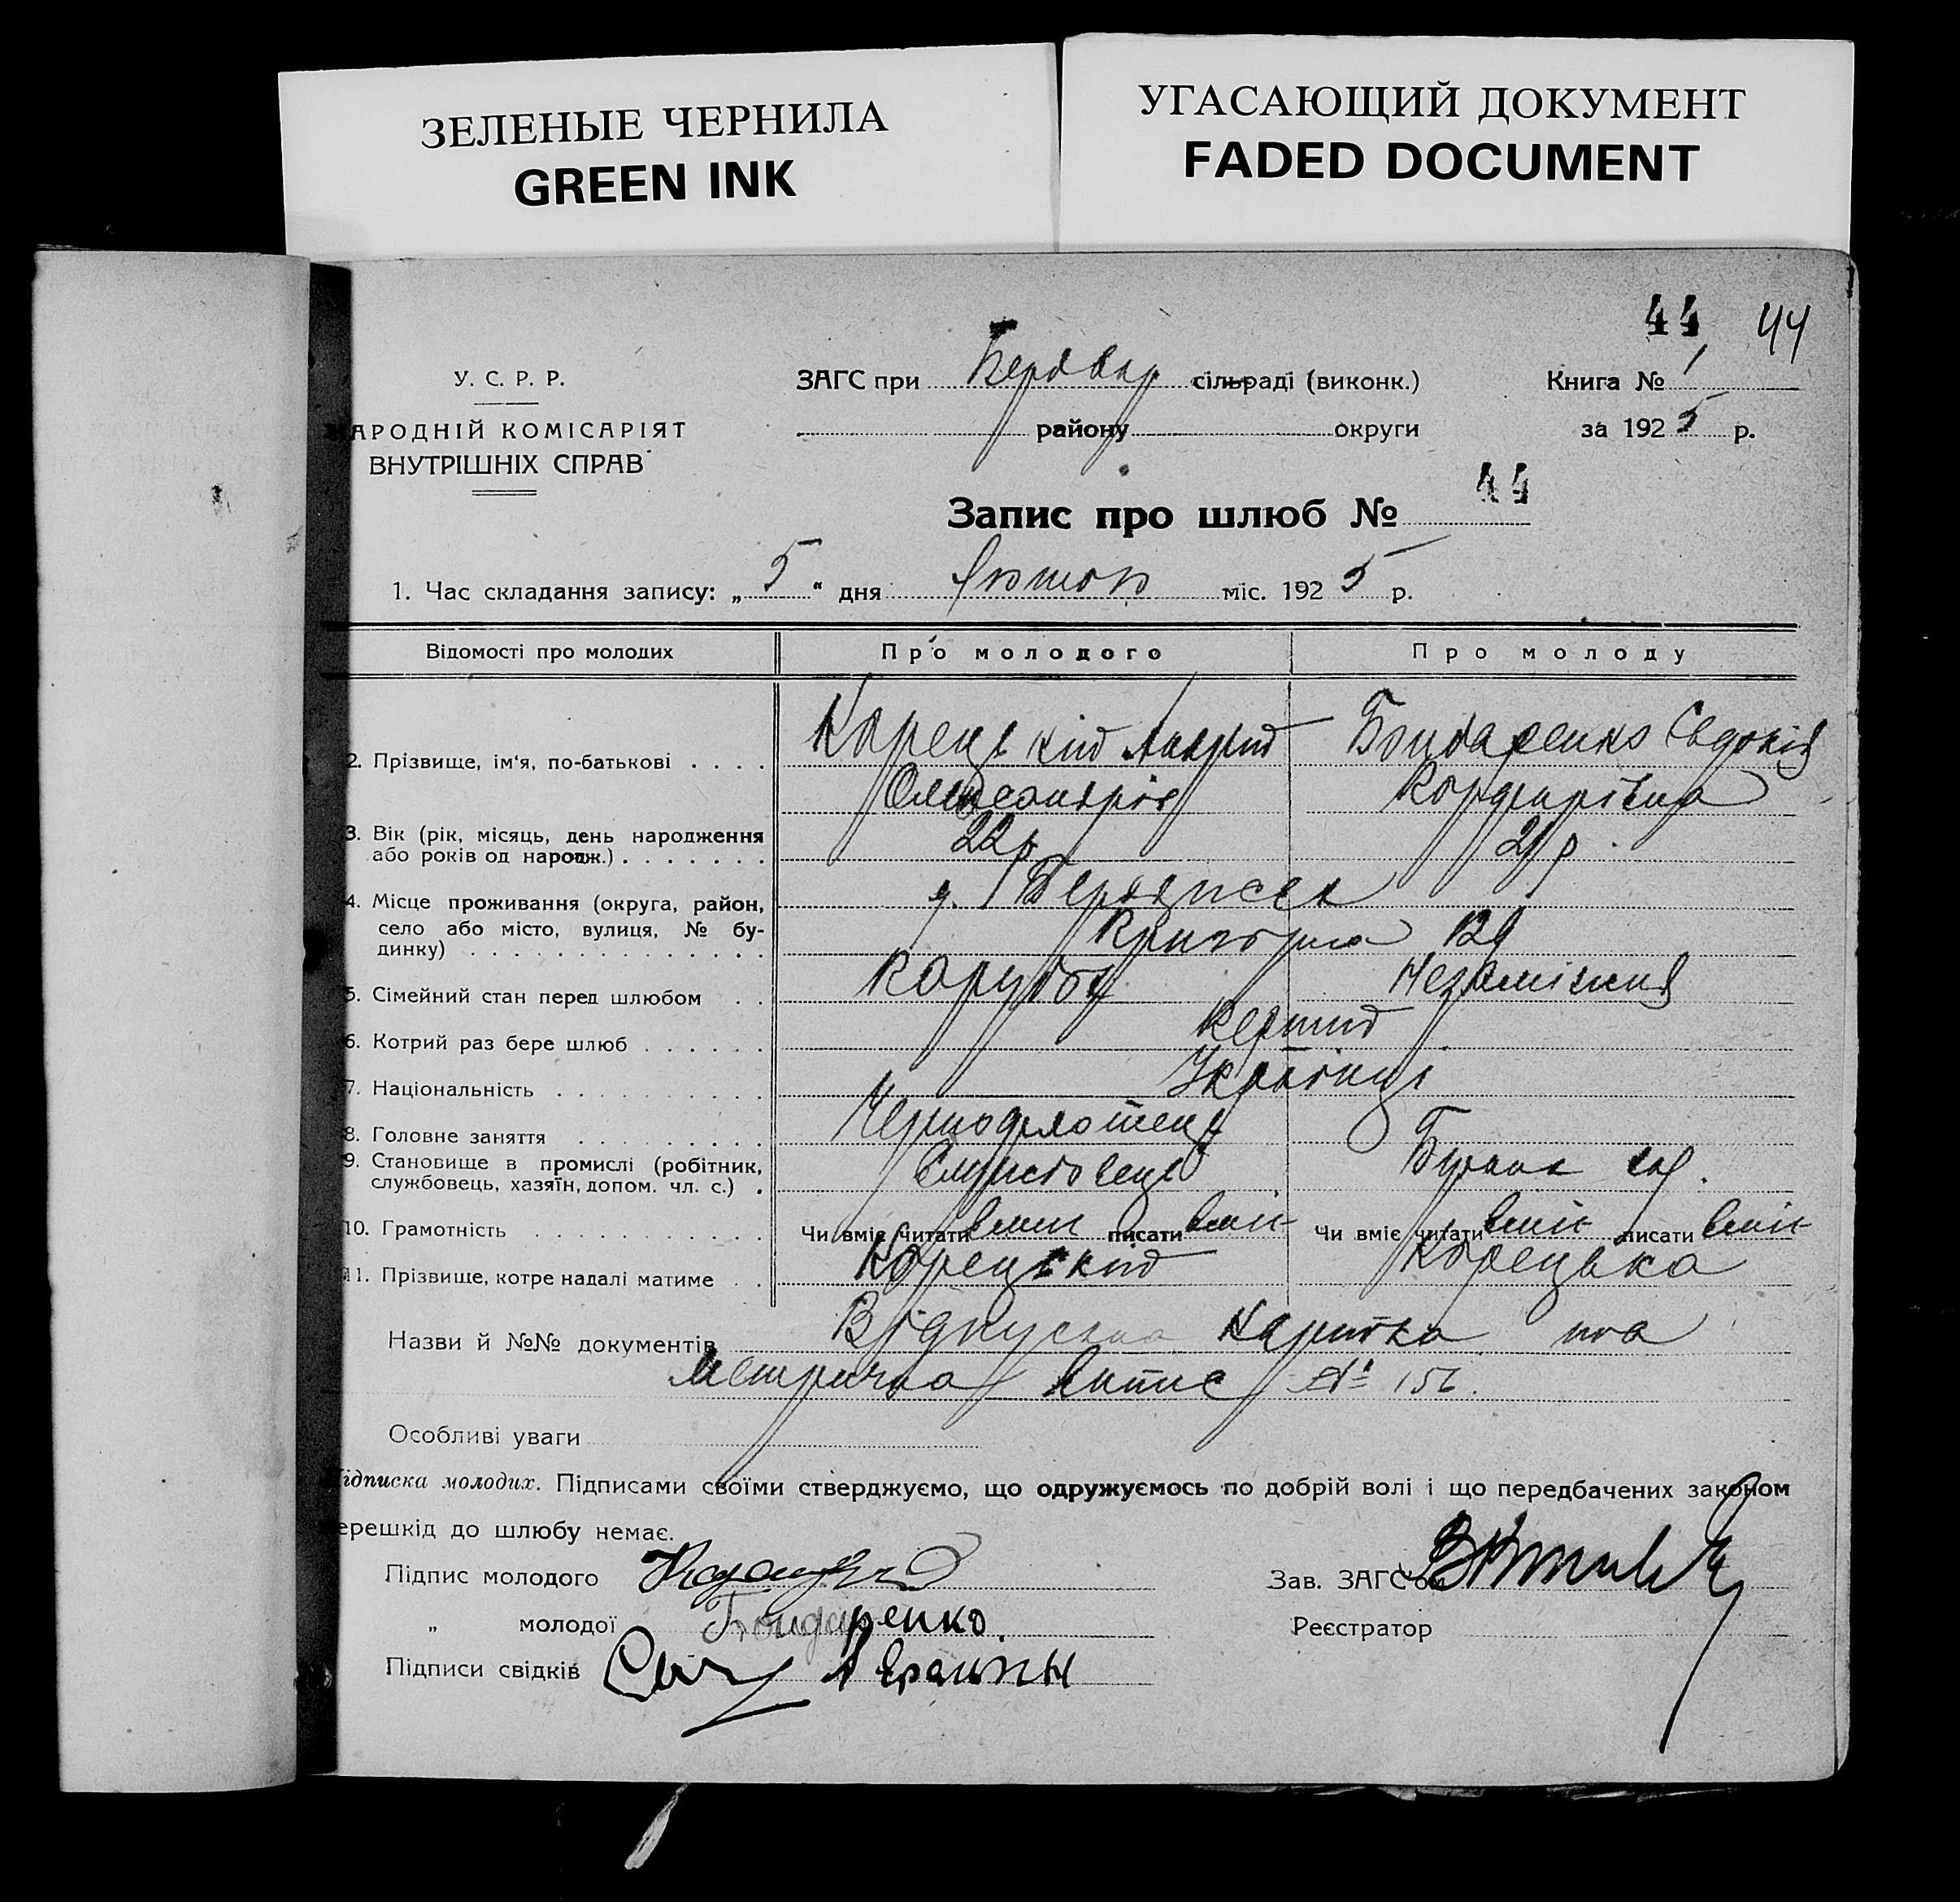 ЗЕЛЕНЫЕ ЧЕРНИЛА
GREEN INK
УГАСАЮЩИЙ ДОКУМЕНТ
FADED DOCUMENT
44 44
У. С. Р. Р.
НАРОДНІЙ КОМІСАРІЯТ
ВНУТРІШНІХ СПРАВ
ЗАГС при сільраді (виконк.)
району округи
Книга № 1
за 1925 р.
Запис про шлюб № 44
1. Час складання запису: „5“ дня Лютого міс. 1925 р.
Відомості про молодих Про молодого Про молоду
2. Прізвище, ім'я, по-батькові Корецький Андрій Бондаренко Євдокія
Олександрів
3. Вік (рік, місяць, день народження
або років од народж.) 22 р 21 р.
4. Місце проживання (округа, район,
село або місто, вулиця, № бу-
динку)
5. Сімейний стан перед шлюбом Парубок Незаміжня
6. Котрий раз бере шлюб Перший
7. Національність Українці
8. Головне заняття
9. Становище в промислі (робітник,
службовець, хазяїн, допом. чл. с.)
10. Грамотність Чи вміє читати вміє писати вміє Чи вміє читати вміє писати вміє
11. Прізвище, котре надалі матиме Корецький Корецька
Назви й №№ документів Відпускна Картка та
Метрична Випис № 156.
Особливі уваги
Підписка молодих. Підписами своїми стверджуємо, що одружуємось по добрій волі і що передбачених законом
перешкід до шлюбу немає.
Підпис молодого
„ молодої Бондаренко.
Підписи свідків
Зав. ЗАГС'ом
Реєстратор